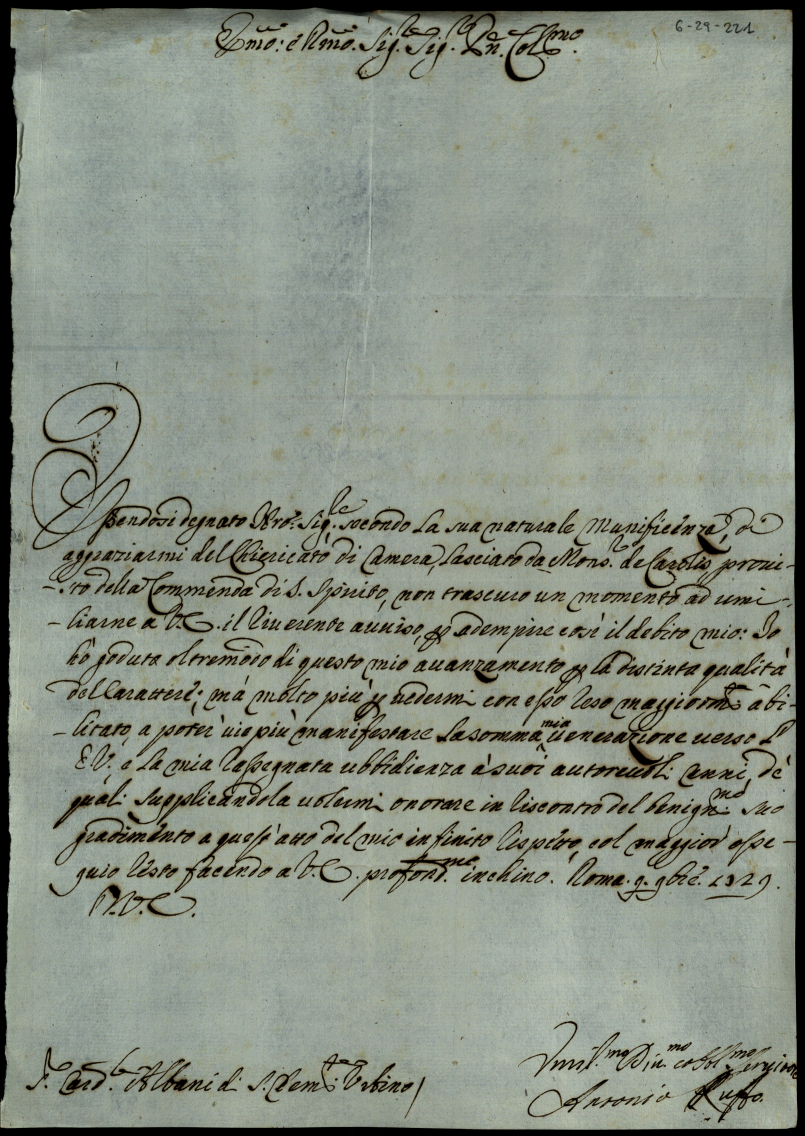 6-29-221
Emo: e Rmo. Sig.re Sig.re Pn. Col.mo
Essendosi degnato Nro. Sig.re secondo la sua naturale munificenza, di
aggraziarmi del Chiericato di Camera, lasciato da Mons.r de Carolis provi-
-sto della Commenda di S. Spirito, non trascuro un momento ad umi-
-liarne a V.E. il riverente avviso, p adempire così il debito mio: Io
hò goduto oltremodo di questo mio avanzamento p la distinta qualità
del Carattere; mà molto più p vedermi con esso reso maggiorm.te abi-
-litato, a poter vie più manifestare la somma mia venerazione verso l'
E.V. e la mia rassegnata ubbidienza à suoi autorevoli cenni, dè
quali supplicandola volermi onorare in riscontro del benign.mo suo
gradimento a quest'atto del mio infinito rispetto, col maggior osse-
quio resto facendo a V.E. profond.mo inchino. Roma. 9. 9bre. 1729.
D.V.E.
S.r Card.le Albani di S. Clem.te Urbino
Umil.mo Div.mo et Obl.mo Servitore
Antonio Ruffo.